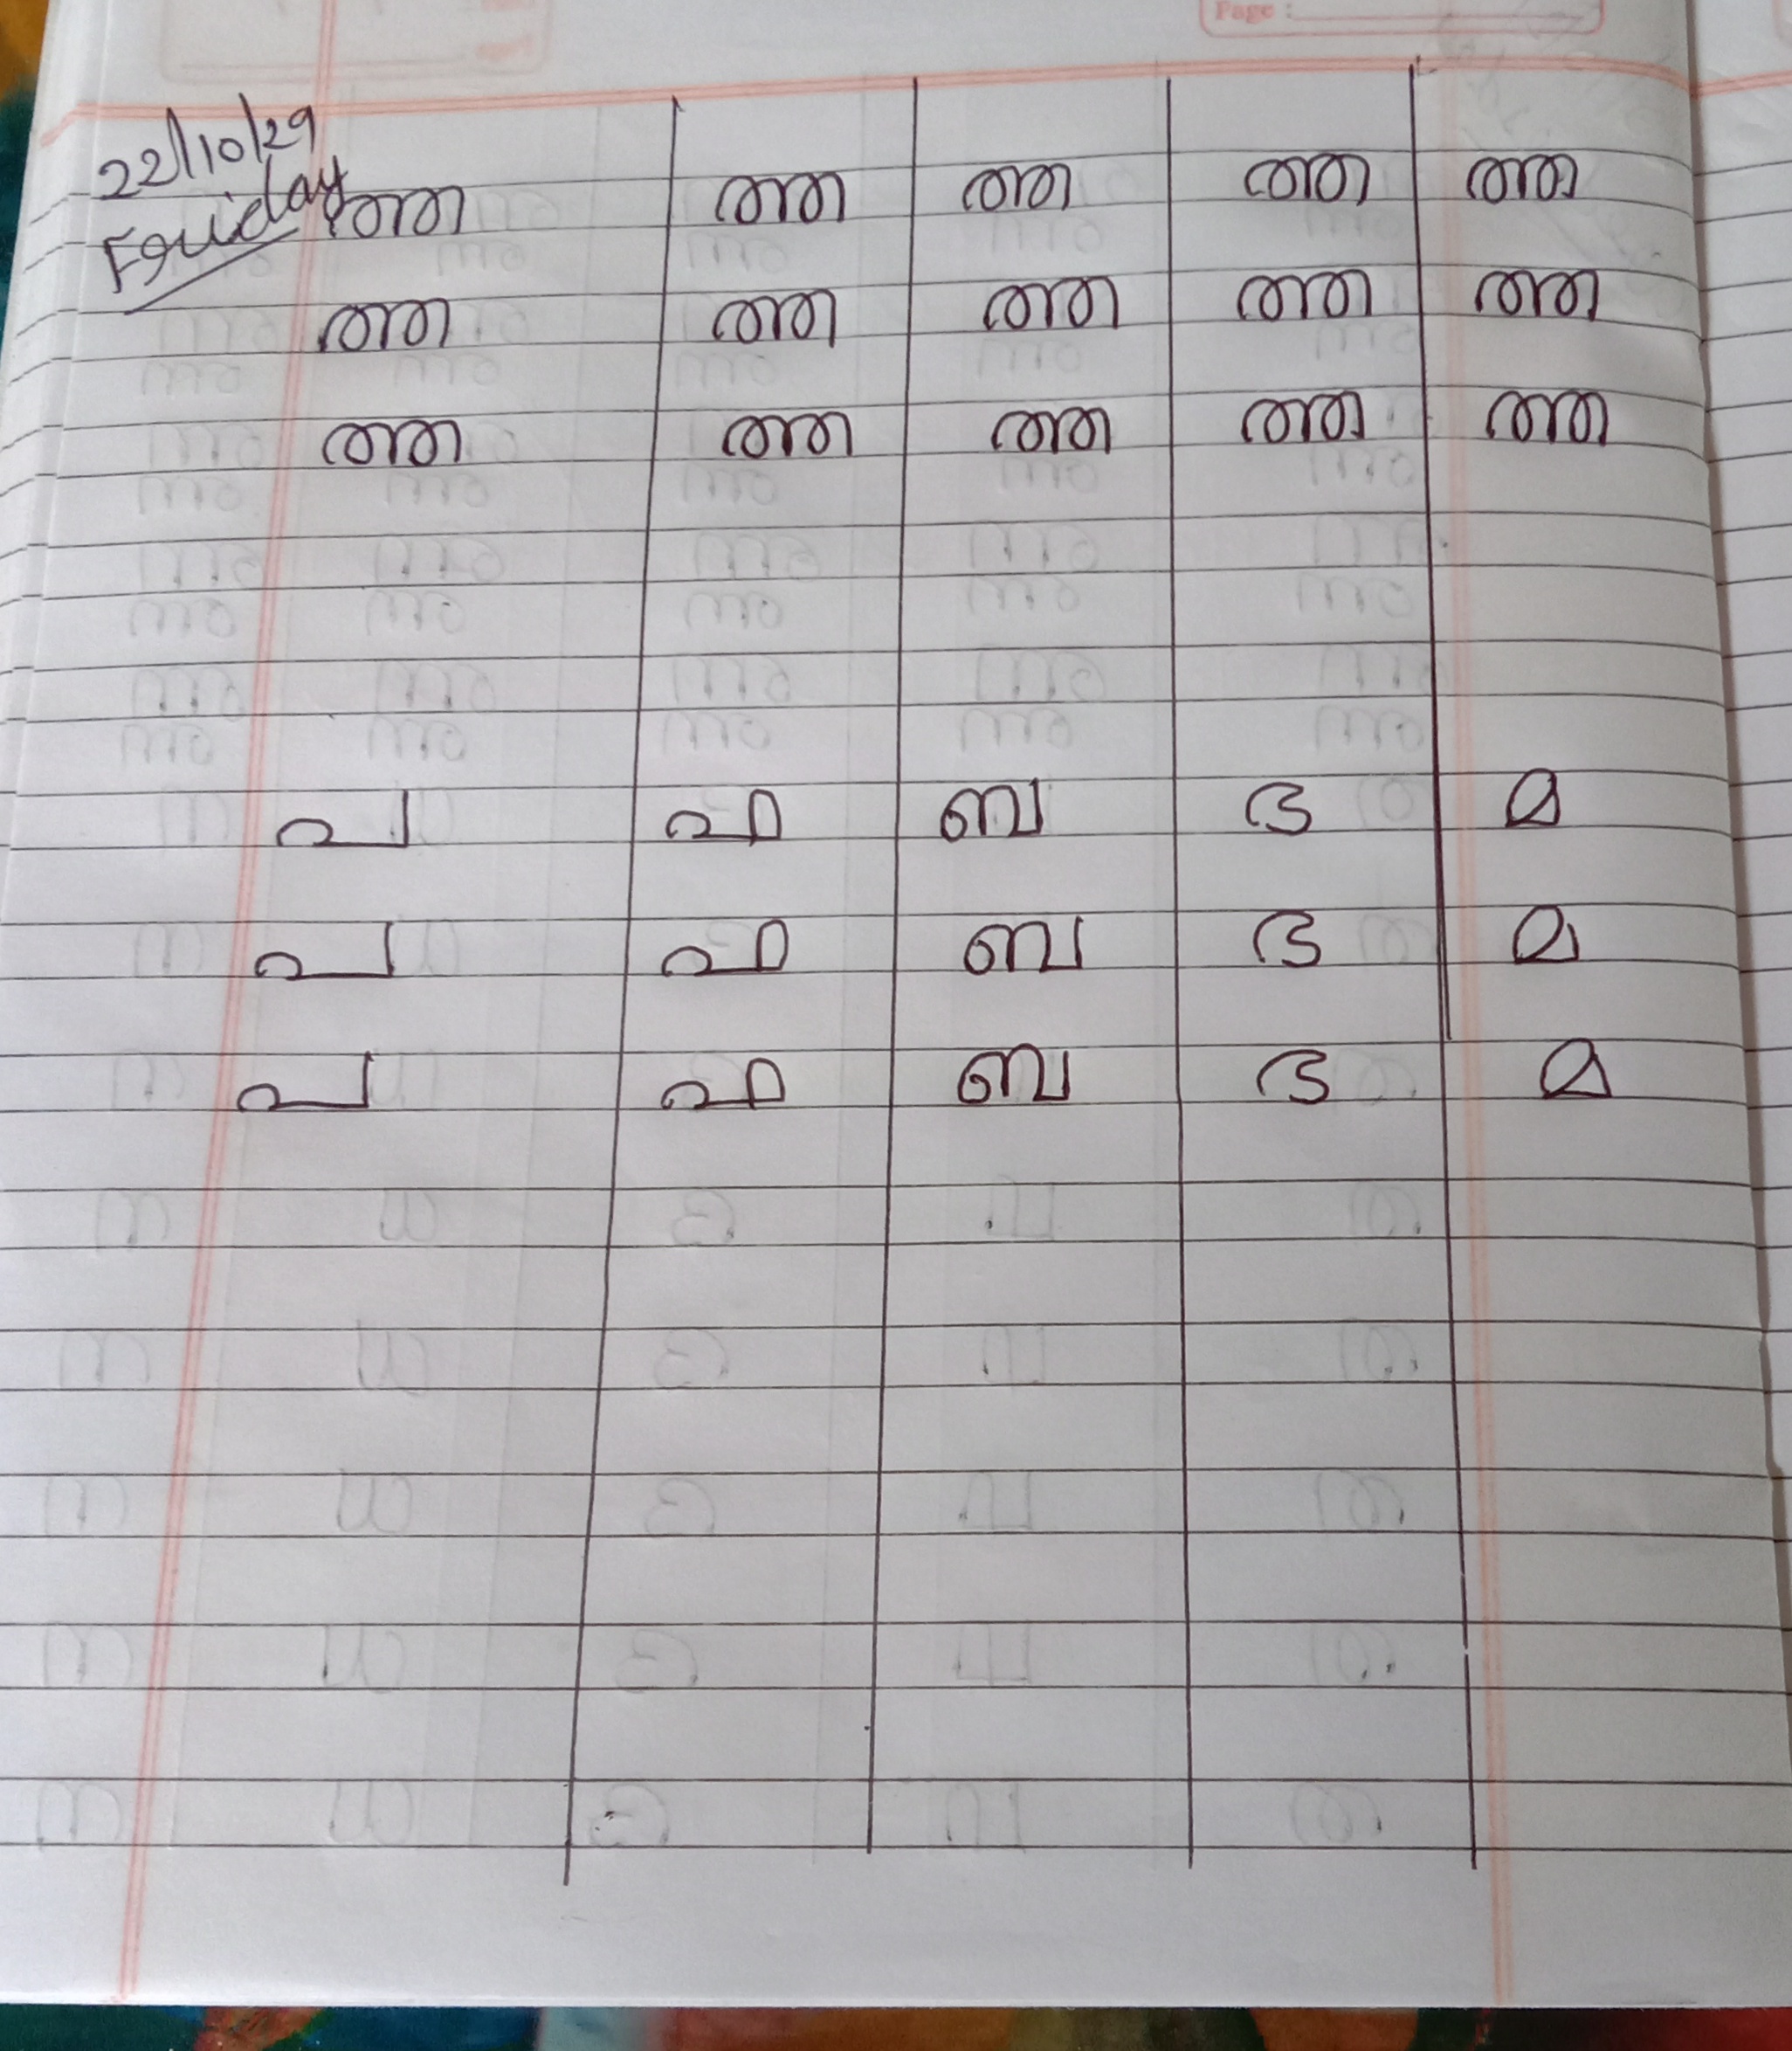 Page :
22/10/29
Friday ത്ത ത്ത ത്ത ത്ത ത്ത
ത്ത ത്ത ത്ത ത്ത ത്ത
ത്ത ത്ത ത്ത ത്ത ത്ത
പ ഫ ബ ഭ മ
പ ഫ ബ ഭ മ
പ ഫ ബ ഭ മ